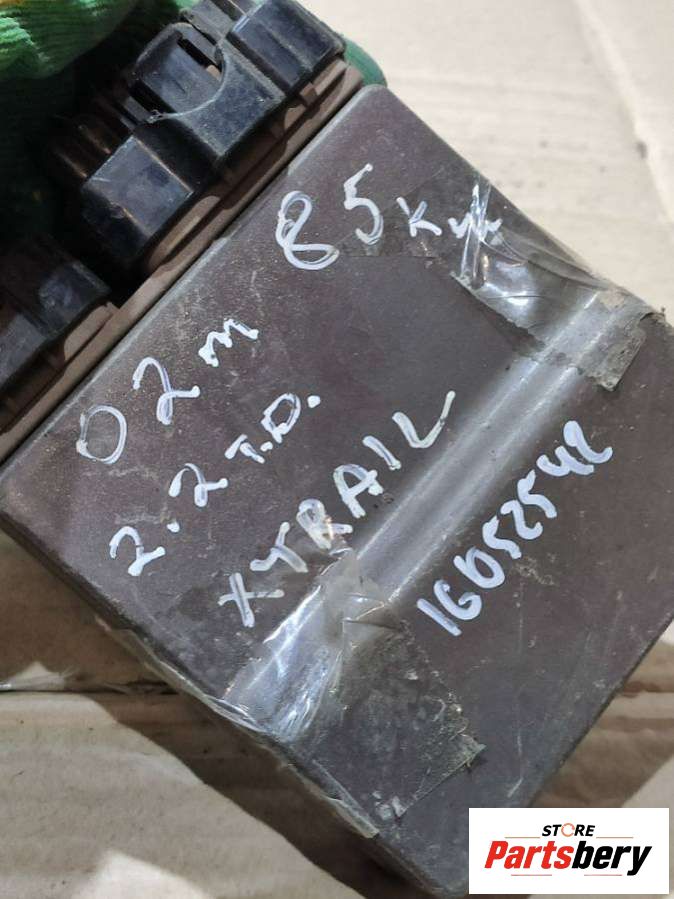 85 Kw
02 m
2.2 T.D.
XTRAIL
16052542
STORE
Partsbery